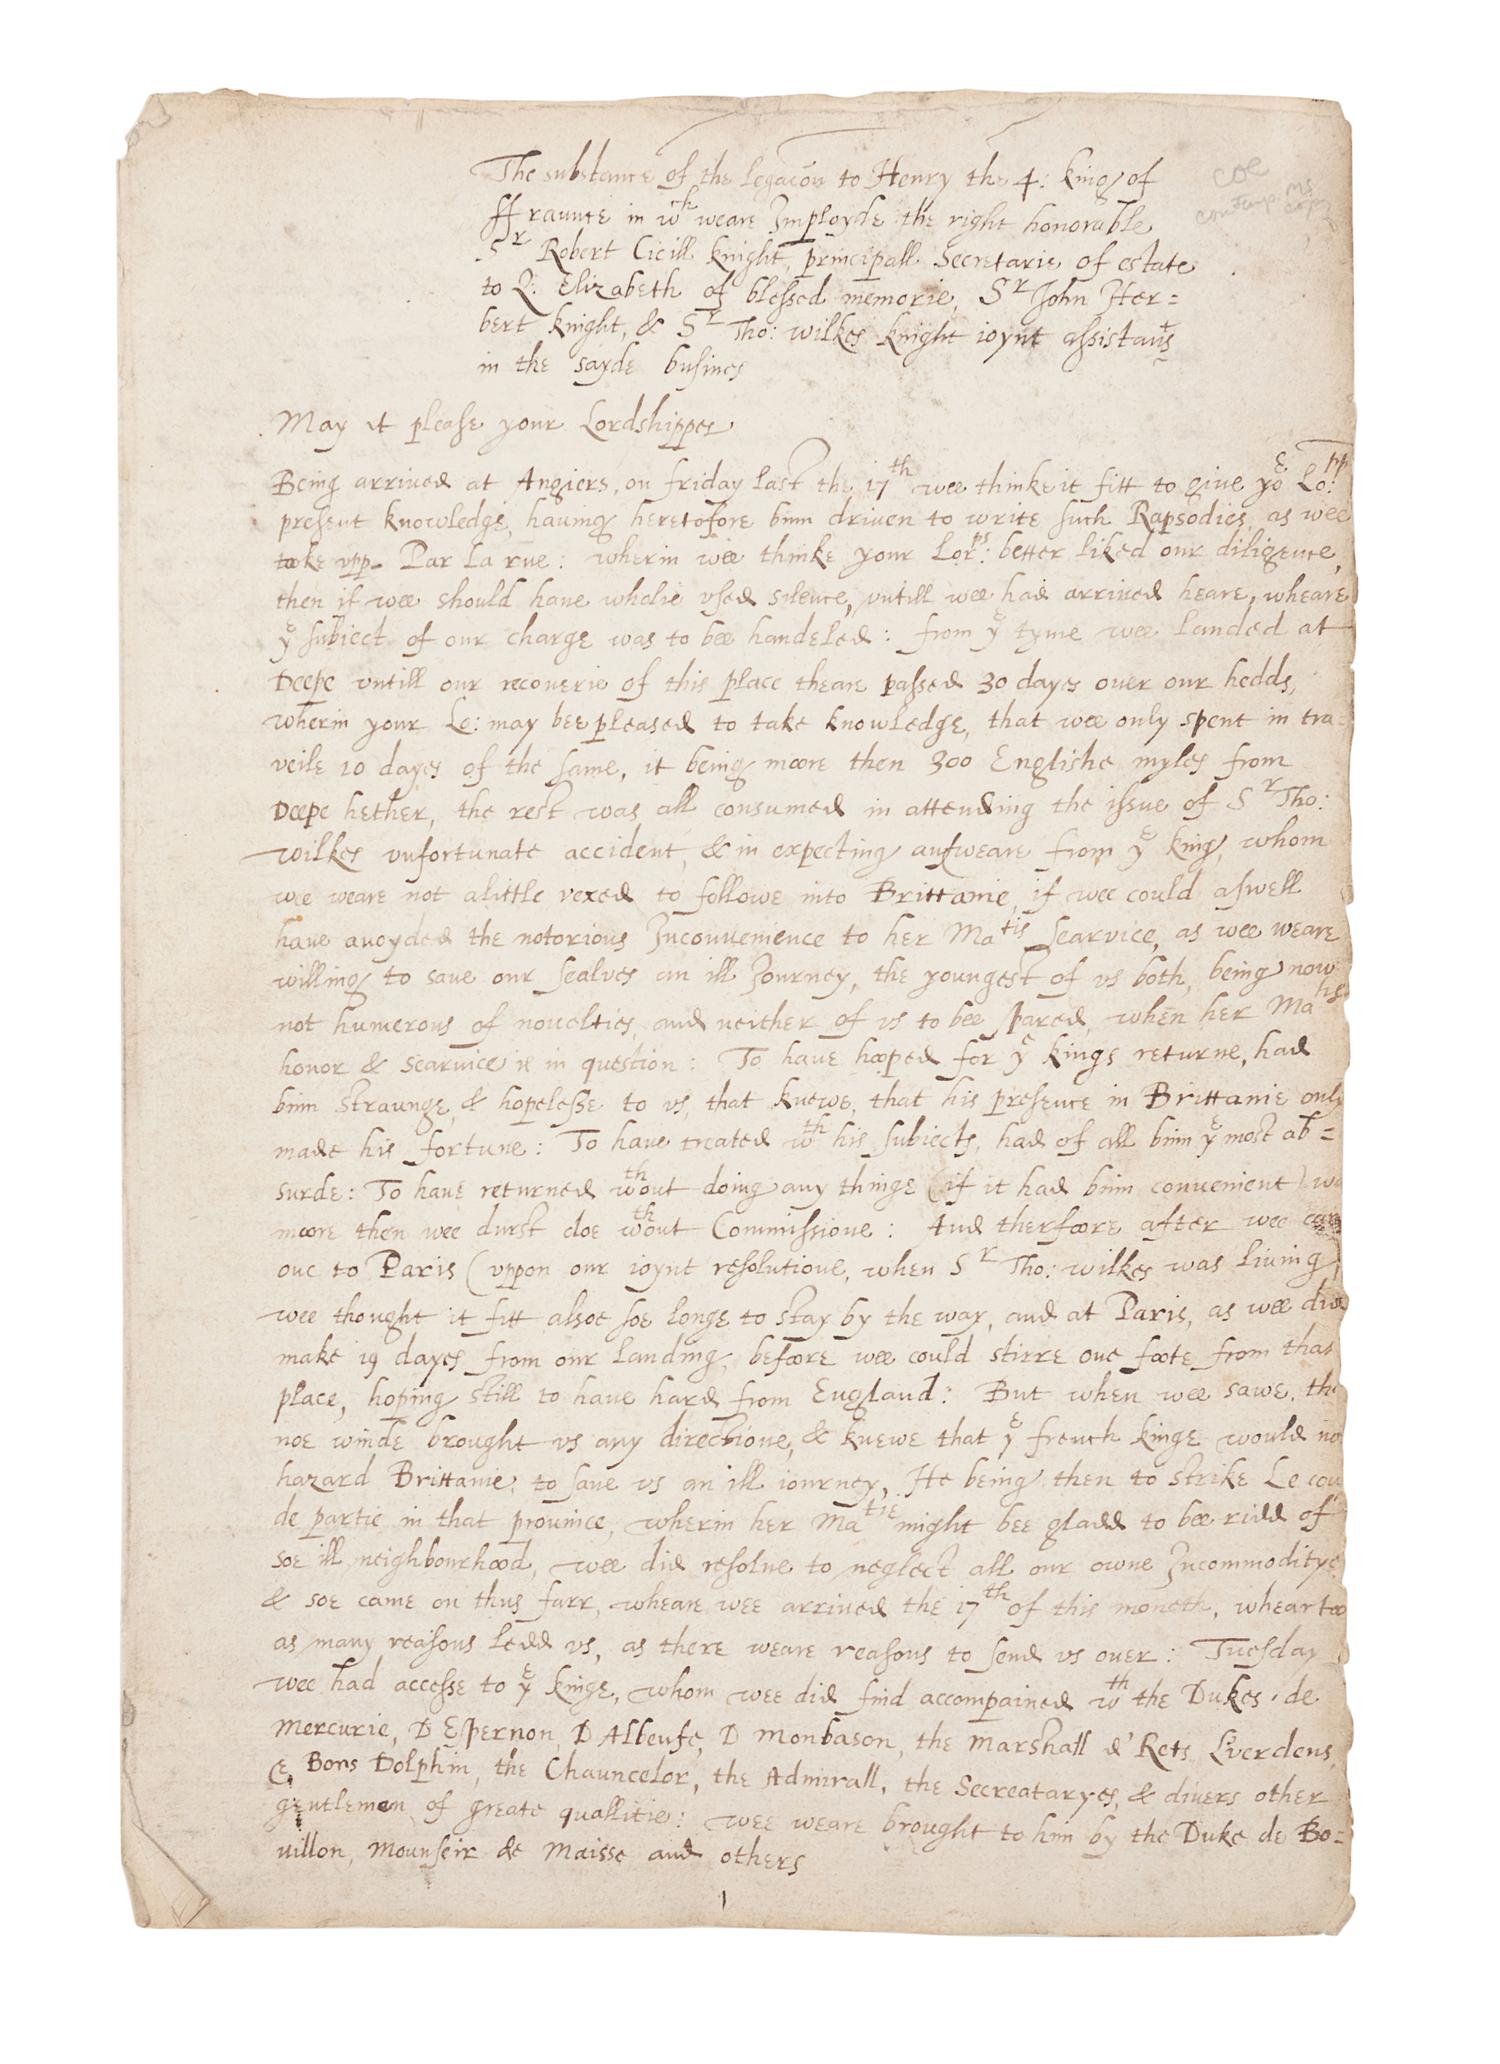 The substance of the legacōn to Henry the 4: king of
ffraunce in wch weare Imployde the right honorable
Sr Robert Cicill knight, principall Secretarie of estate
to Q: Elizabeth of blessed memorie, Sr John Her=
bert knight, & Sr Tho: wilkes knight ioynt assistants
in the sayde busines
coe
contemp. ms copy
May it please your Lordshippes
Being arrived at Angiers, on friday last the 17th wee thinke it fitt to give yo Lo:pp
present knowledge, having heretofore binn driven to write such Rapsodies, as wee
take vpp Par La rue: wherin wee thinke your Lorps: better liked our diligence,
then if wee should have wholie vsed silence, vntill wee had arrived heare, wheare
ye subiect of our charge was to bee handeled: from ye tyme wee landed at
Deepe vntill our recoverie of this place theare passed 30 dayes over our hedds,
wherin your Lo: may bee pleased to take knowledge, that wee only spent in tra=
veile 10 dayes of the same, it being moore then 300 Englishe myles from
Deepe hether, the rest was all consumed in attending the issue of Sr Tho:
wilkes vnfortunate accident, & in expecting answeare from ye king, whom
wee weare not alittle vexed to followe into Brittanie, if wee could aswell
have avoyded the notorious Inconvenience to her Matis Searvice, as wee weare
willing to save our sealves an ill Journey, the youngest of vs both, being now
not humerous of novelties, and neither of vs to bee spared, when her Matis
honor & Searvice is in question: To have hooped for ye kings returne, had
binn straunge, & hopelesse to vs, that knewe, that his presence in Brittanie only
made his fortune: To have treated wth his subiects, had of all binn ye most ab=
surde: To have returned wthout doing any thinge (if it had binn convenient) wa
moore then wee durst doe wthout Commissione: And therfoore after wee cam
one to Paris (vppon our ioynt resolutione, when Sr Tho: wilkes was living
wee thought it fitt alsoe soe longe to stay by the way, and at Paris, as wee did
make 19 dayes from our landing, befoore wee could stirre one foote from that
place, hoping still to have hard from England: But when wee sawe, th
noe winde brought vs any directione, & knewe that ye french kinge would no
hazard Brittanie, to save vs an ill iourney, He being then to strike Le cou
de partie in that province, wherin her Matie might bee gladd to bee ridd of
soe ill neighbourhood, wee did resolve to neglect all our owne Incommoditye
& soe came on thus farr, wheare wee arrived the 17th of this moneth, whearto
as many reasons ledd vs, as there weare reasons to send vs over: Tuesday
wee had accesse to ye kinge, whom wee did find accompained wth the Dukes de
Mercurie, D Epernon, D Albeufe, D Monbason, the Marshall d' Rets, Lverdens,
& Bons Dolphin, the Chauncelor, the Admirall, the Secreataryes, & divers other
gentlemen of greate quallitie: wee weare brought to him by the Duke de Bo=
uillon, Mounseir de Maisse and others
1